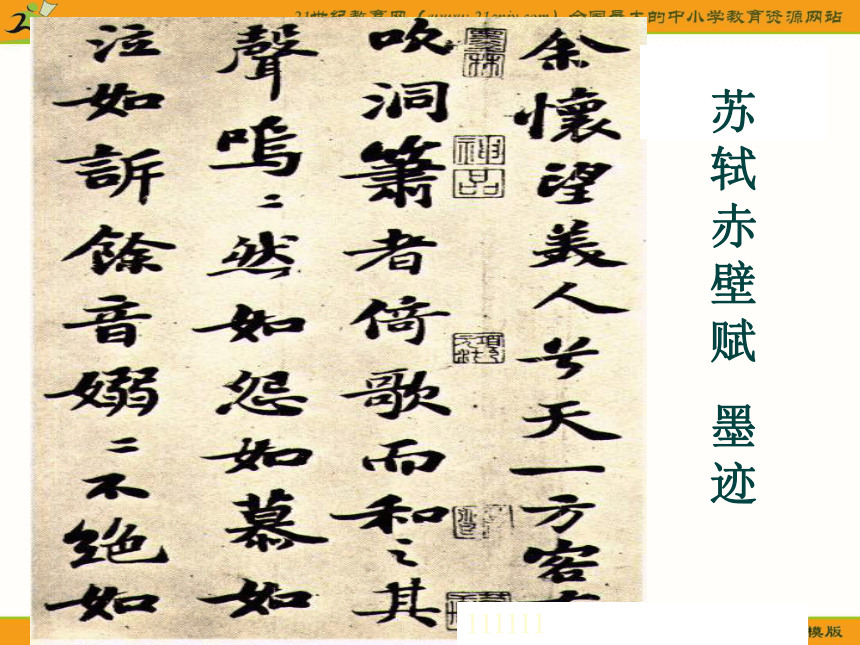 21世纪教育网（www.21cnjy.com）全国最大的中小学教育资源网站
余懷望美人兮天一方客有
吹洞簫者倚歌而和之其
聲嗚〻然如怨如慕如
泣如訴餘音嫋〻不絕如
神品
苏轼赤壁赋 墨迹
111111
模版